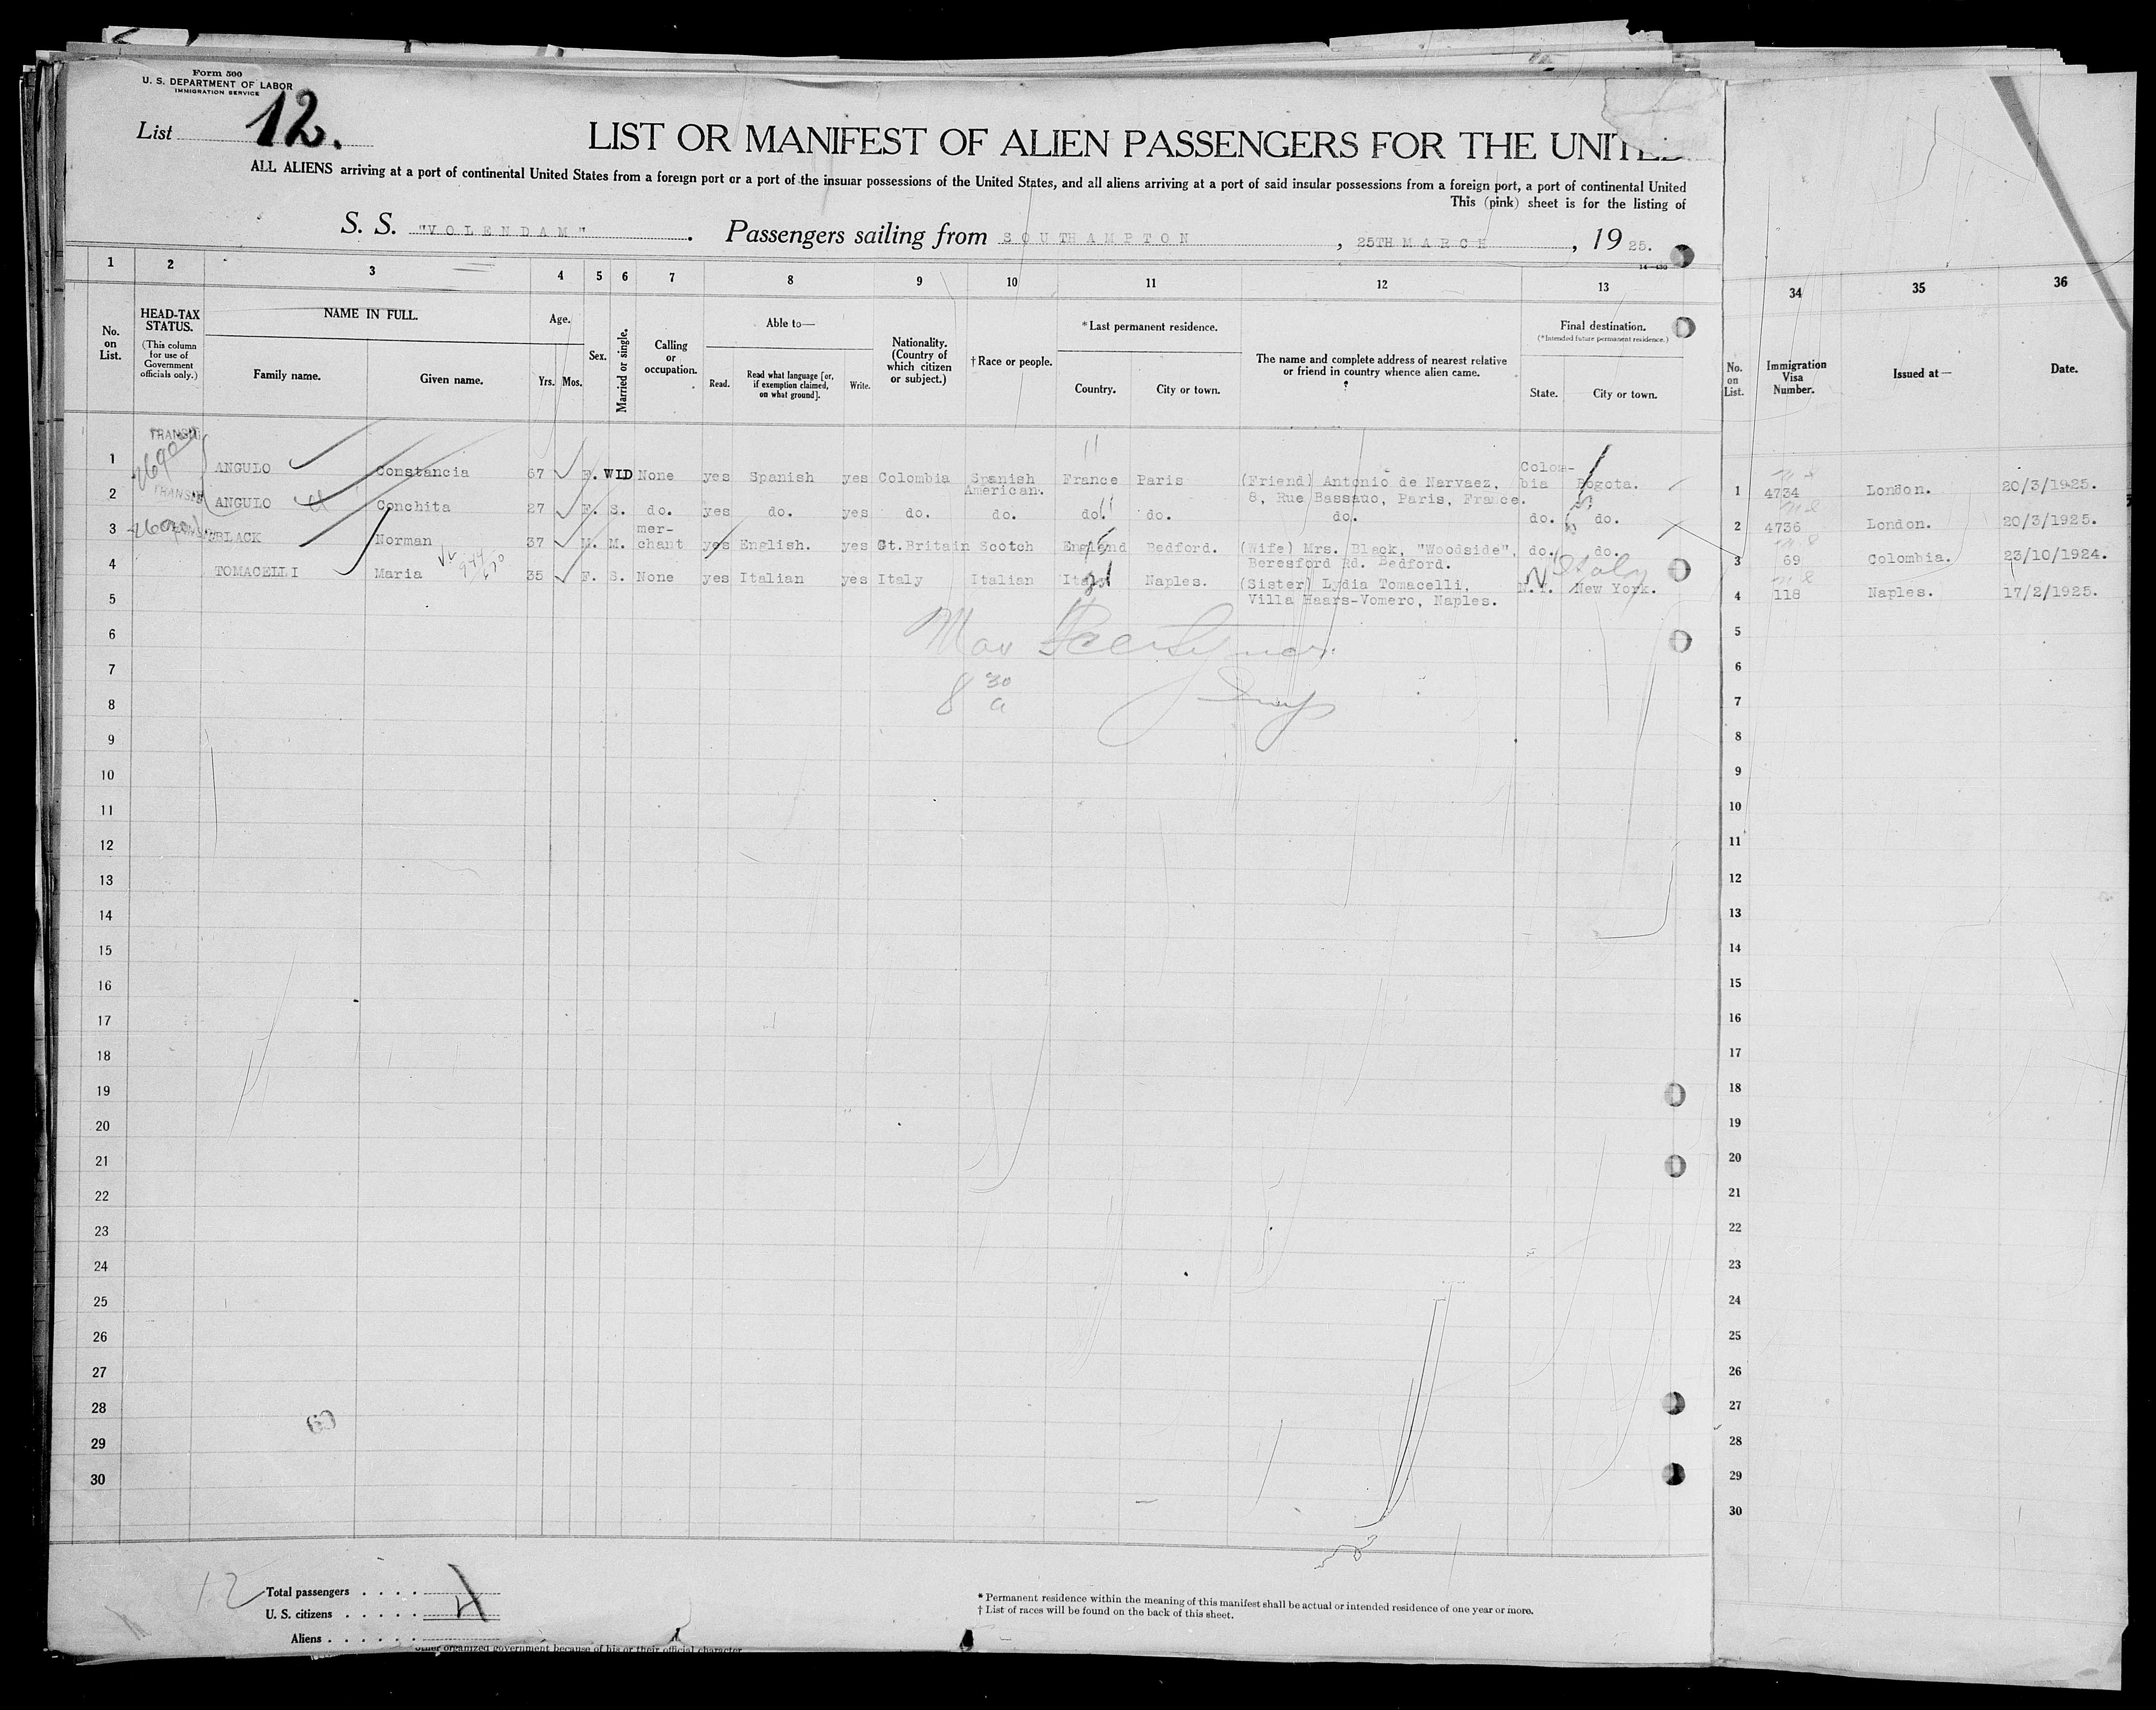 Form 500
U. S. DEPARTMENT OF LABOR
IMMIGRATION SERVICE
List 12.
LIST OR MANIFEST OF ALIEN PASSENGERS FOR THE UNITED
ALL ALIENS arriving at a port of continental United States from a foreign port or a port of the insular possessions of the United States, and all aliens arriving at a port of said insular possessions from a foreign port, a port of continental United
This (pink) sheet is for the listing of
S. S. "VOLENDAM". Passengers sailing from SOUTHAMPTON, 25TH MARCH, 1925.
14-430
1 2 3 4 5 6 7 8 9 10 11 12 13 34 35 36
No. on List.
HEAD-TAX STATUS.
(This column for use of Government officials only.)
NAME IN FULL.
Family name. Given name.
Age.
Yrs. Mos.
Sex.
Married or single.
Calling or occupation.
Able to—
Read. Read what language [or, if exemption claimed, on what ground]. Write.
Nationality. (Country of which citizen or subject.)
†Race or people.
*Last permanent residence.
Country. City or town.
The name and complete address of nearest relative or friend in country whence alien came.
Final destination.
(*Intended future permanent residence.)
State. City or town.
No. on List.
Immigration Visa Number.
Issued at—
Date.
TRANSIT
1 ANGULO Constancia 67 F. WID None yes Spanish yes Colombia Spanish American. France Paris (Friend) Antonio de Narvaez, 8, Rue Bassauo, Paris, France. Colombia Bogota. 1 4734 London. 20/3/1925.
TRANSIT
2 ANGULO Conchita 27 F. S. do. yes do. yes do. do. do. do. do. do. do. 2 4736 London. 20/3/1925.
3 BLACK Norman 37 M. M. merchant yes English. yes Gt.Britain Scotch England Bedford. (Wife) Mrs. Black, "Woodside", Beresford Rd. Bedford. do. do. 3 69 Colombia. 23/10/1924.
4 TOMACELLI Maria 35 F. S. None yes Italian yes Italy Italian Italy Naples. (Sister) Lydia Tomacelli, Villa Haars-Vomero, Naples. N.Y. New York. 4 118 Naples. 17/2/1925.
Italy
5 5
6 6
7 7
8 30 a
8 8
9 9
10 10
11 11
12 12
13 13
14 14
15 15
16 16
17 17
18 18
19 19
20 20
21 21
22 22
23 23
24 24
25 25
26 26
27 27
28 28
29 29
30 30
12
Total passengers . . . .
U. S. citizens . . . . . 
Aliens . . . . . . 
* Permanent residence within the meaning of this manifest shall be actual or intended residence of one year or more.
† List of races will be found on the back of this sheet.
other organized government because of his or their official character